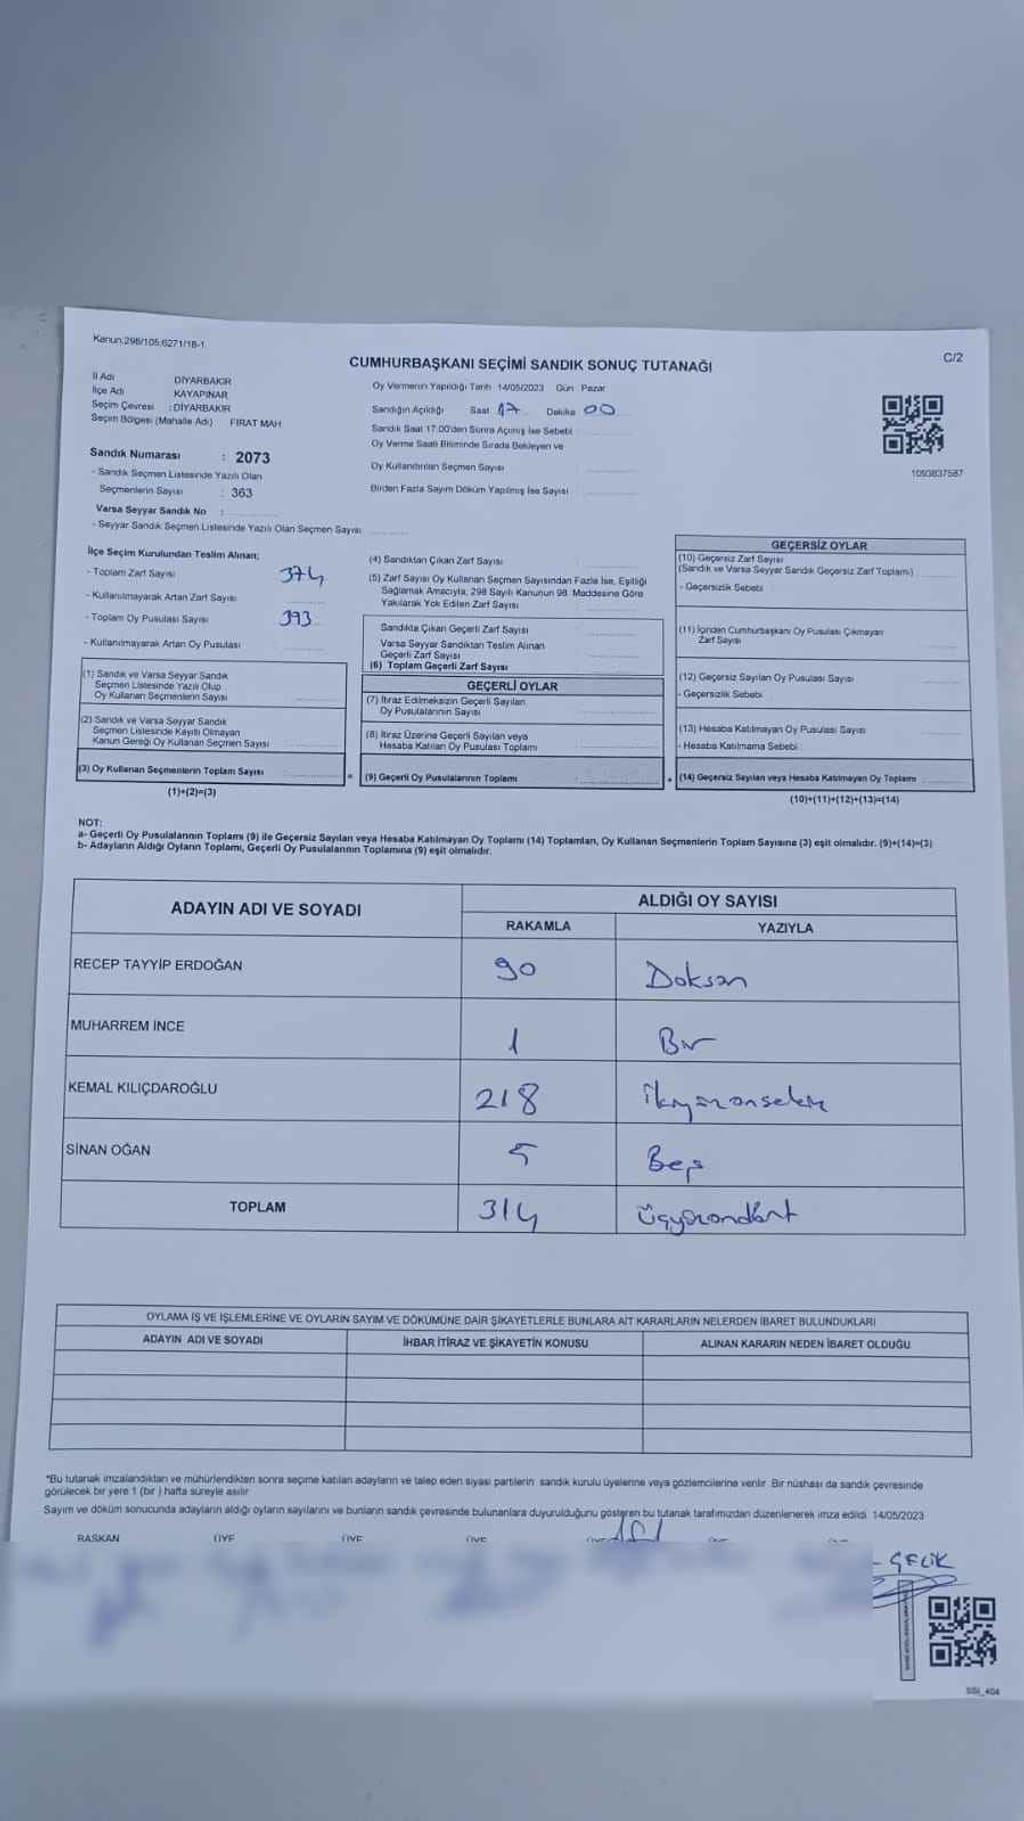 Kanun.298/105,6271/18-1
C/2
CUMHURBAŞKANI SEÇİMİ SANDIK SONUÇ TUTANAĞI
İl Adı DİYARBAKIR
İlçe Adı KAYAPINAR
Seçim Çevresi : DİYARBAKIR
Seçim Bölgesi (Mahalle Adı) FIRAT MAH
Sandık Numarası : 2073
- Sandık Seçmen Listesinde Yazılı Olan
Seçmenlerin Sayısı : 363
Varsa Seyyar Sandık No :
- Seyyar Sandık Seçmen Listesinde Yazılı Olan Seçmen Sayısı
Oy Vermenin Yapıldığı Tarih 14/05/2023 Gün Pazar
Sandığın Açıldığı Saat 17 Dakika 00
Sandık Saat 17.00'den Sonra Açılmış İse Sebebi
Oy Verme Saati Bitiminde Sırada Bekleyen ve
Oy Kullandırılan Seçmen Sayısı
Birden Fazla Sayım Döküm Yapılmış İse Sayısı
1093837587
İlçe Seçim Kurulundan Teslim Alınan;
- Toplam Zarf Sayısı 374
- Kullanılmayarak Artan Zarf Sayısı
- Toplam Oy Pusulası Sayısı 393
- Kullanılmayarak Artan Oy Pusulası
(1) Sandık ve Varsa Seyyar Sandık
Seçmen Listesinde Yazılı Olup
Oy Kullanan Seçmenlerin Sayısı
(2) Sandık ve Varsa Seyyar Sandık
Seçmen Listesinde Kayıtlı Olmayan
Kanun Gereği Oy Kullanan Seçmen Sayısı
(3) Oy Kullanan Seçmenlerin Toplam Sayısı
(1)+(2)=(3)
(4) Sandıktan Çıkan Zarf Sayısı
(5) Zarf Sayısı Oy Kullanan Seçmen Sayısından Fazla İse, Eşitliği
Sağlamak Amacıyla, 298 Sayılı Kanunun 98. Maddesine Göre
Yakılarak Yok Edilen Zarf Sayısı
Sandıkta Çıkan Geçerli Zarf Sayısı
Varsa Seyyar Sandıktan Teslim Alınan
Geçerli Zarf Sayısı
(6) Toplam Geçerli Zarf Sayısı
GEÇERLİ OYLAR
(7) İtiraz Edilmeksizin Geçerli Sayılan
Oy Pusulalarının Sayısı
(8) İtiraz Üzerine Geçerli Sayılan veya
Hesaba Katılan Oy Pusulası Toplamı
= (9) Geçerli Oy Pusulalarının Toplamı
GEÇERSİZ OYLAR
(10) Geçersiz Zarf Sayısı
(Sandık ve Varsa Seyyar Sandık Geçersiz Zarf Toplamı)
- Geçersizlik Sebebi
(11) İçinden Cumhurbaşkanı Oy Pusulası Çıkmayan
Zarf Sayısı
(12) Geçersiz Sayılan Oy Pusulası Sayısı
- Geçersizlik Sebebi
(13) Hesaba Katılmayan Oy Pusulası Sayısı
- Hesaba Katılmama Sebebi
+ (14) Geçersiz Sayılan veya Hesaba Katılmayan Oy Toplamı
(10)+(11)+(12)+(13)=(14)
NOT:
a- Geçerli Oy Pusulalarının Toplamı (9) ile Geçersiz Sayılan veya Hesaba Katılmayan Oy Toplamı (14) Toplamları, Oy Kullanan Seçmenlerin Toplam Sayısına (3) eşit olmalıdır. (9)+(14)=(3)
b- Adayların Aldığı Oyların Toplamı, Geçerli Oy Pusulalarının Toplamına (9) eşit olmalıdır.
ADAYIN ADI VE SOYADI
ALDIĞI OY SAYISI
RAKAMLA YAZIYLA
RECEP TAYYİP ERDOĞAN 90 Doksan
MUHARREM İNCE 1 Bir
KEMAL KILIÇDAROĞLU 218 ikiyüzonsekiz
SİNAN OĞAN 5 Beş
TOPLAM 314 Üçyüzondört
OYLAMA İŞ VE İŞLEMLERİNE VE OYLARIN SAYIM VE DÖKÜMÜNE DAİR ŞİKAYETLERLE BUNLARA AİT KARARLARIN NELERDEN İBARET BULUNDUKLARI
ADAYIN ADI VE SOYADI İHBAR İTİRAZ VE ŞİKAYETİN KONUSU ALINAN KARARIN NEDEN İBARET OLDUĞU
*Bu tutanak imzalandıktan ve mühürlendikten sonra seçime katılan adayların ve talep eden siyasi partilerin sandık kurulu üyelerine veya gözlemcilerine verilir. Bir nüshası da sandık çevresinde
görülecek bir yere 1 (bir) hafta süreyle asılır
Sayım ve döküm sonucunda adayların aldığı oyların sayılarını ve bunların sandık çevresinde bulunanlara duyurulduğunu gösteren bu tutanak tarafımızdan düzenlenerek imza edildi. 14/05/2023
BAŞKAN ÜYE ÜYE ÜYE
ÇELİK
SSI_404